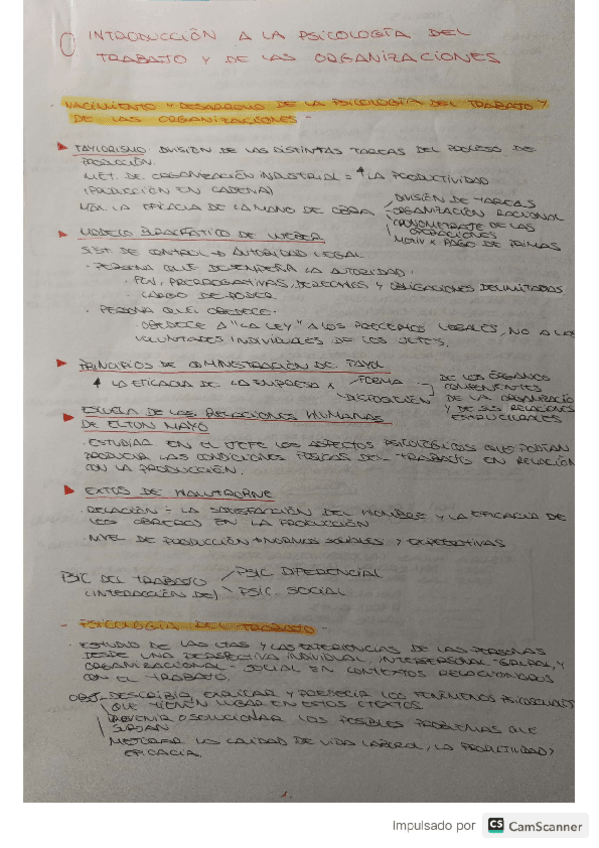 INTRODUCCIÓN A LA PSICOLOGÍA DEL
TRABAJO Y DE LAS ORGANIZACIONES
- NACIMIENTO Y DESARROLLO DE LA PSICOLOGÍA DEL TRABAJO Y
DE LAS ORGANIZACIONES -
TAYLORISMO DIVISIÓN DE LAS DISTINTAS TAREAS DEL PROCESO DE
PRODUCCIÓN.
MET. DE ORGANIZACIÓN INDUSTRIAL = ↑ LA PRODUCTIVIDAD
(PRODUCCIÓN EN CADENA)
LA EFICACIA DE LA MANO DE OBRA
DIVISIÓN DE TAREAS
ORGANIZACIÓN RACIONAL
CRONOMETRAJE DE LAS
OPERACIONES
MOTIV X PAGO DE PRIMAS
MODELO BUROCRÁTICO DE WEBER
SIST. DE CONTROL → AUTORIDAD LEGAL
· PERSONA QUE DESEMPEÑA LA AUTORIDAD:
· PRERROGATIVAS, DERECHOS Y OBLIGACIONES DELIMITADOS
· CARGO DE PODER
· PERSONA QUE OBEDECE:
· OBEDECE A "LA LEY" A LOS PRECEPTOS LEGALES, NO A LAS
VOLUNTADES INDIVIDUALES DE LOS JEFES.
PRINCIPIOS DE ADMINISTRACIÓN DE FAYOL
↑ LA EFICACIA DE LA EMPRESA X
FORMA
DISPOSICIÓN
DE LOS ÓRGANOS
COMPONENTES
DE LA ORGANIZACIÓ
Y DE SUS RELACIONES
ESTRUCTURALES
ESCUELA DE LAS RELACIONES HUMANAS
DE ELTON MAYO
· ESTUDIAR EN EL JEFE LOS ASPECTOS PSICOLÓGICOS QUE PODÍAN
PRODUCIR LAS CONDICIONES FÍSICAS DEL TRABAJO EN RELACIÓN
CON LA PRODUCCIÓN.
DE HAWTHORNE
· RELACIÓN = LA SATISFACCIÓN DEL HOMBRE Y LA EFICACIA DE
LOS OBREROS EN LA PRODUCCIÓN
· NIVEL DE PRODUCCIÓN → NORMAS SOCIALES Y EXPECTATIVAS
PSIC DEL TRABAJO
(INTERACCIÓN DE)
PSIC DIFERENCIAL
PSIC. SOCIAL
- PSICOLOGÍA DEL TRABAJO -
· ESTUDIO DE LAS CTAS Y LAS EXPERIENCIAS DE LAS PERSONAS
DESDE UNA PERSPECTIVA INDIVIDUAL, INTERPERSONAL-GRUPAL, Y
ORGANIZACIONAL-SOCIAL EN CONTEXTOS RELACIONADOS
CON EL TRABAJO.
OBJ. DESCRIBIR, EXPLICAR Y PREDECIR LOS FENÓMENOS PSICOSOCIALES
QUE TIENEN LUGAR EN ESTOS CTEXTOS.
PREVENIR O SOLUCIONAR LOS POSIBLES PROBLEMAS QUE
SURJAN
MEJORAR LA CALIDAD DE VIDA LABORAL, LA PRODUCTIVIDAD Y
EFICACIA.
1.
Impulsado por CS CamScanner